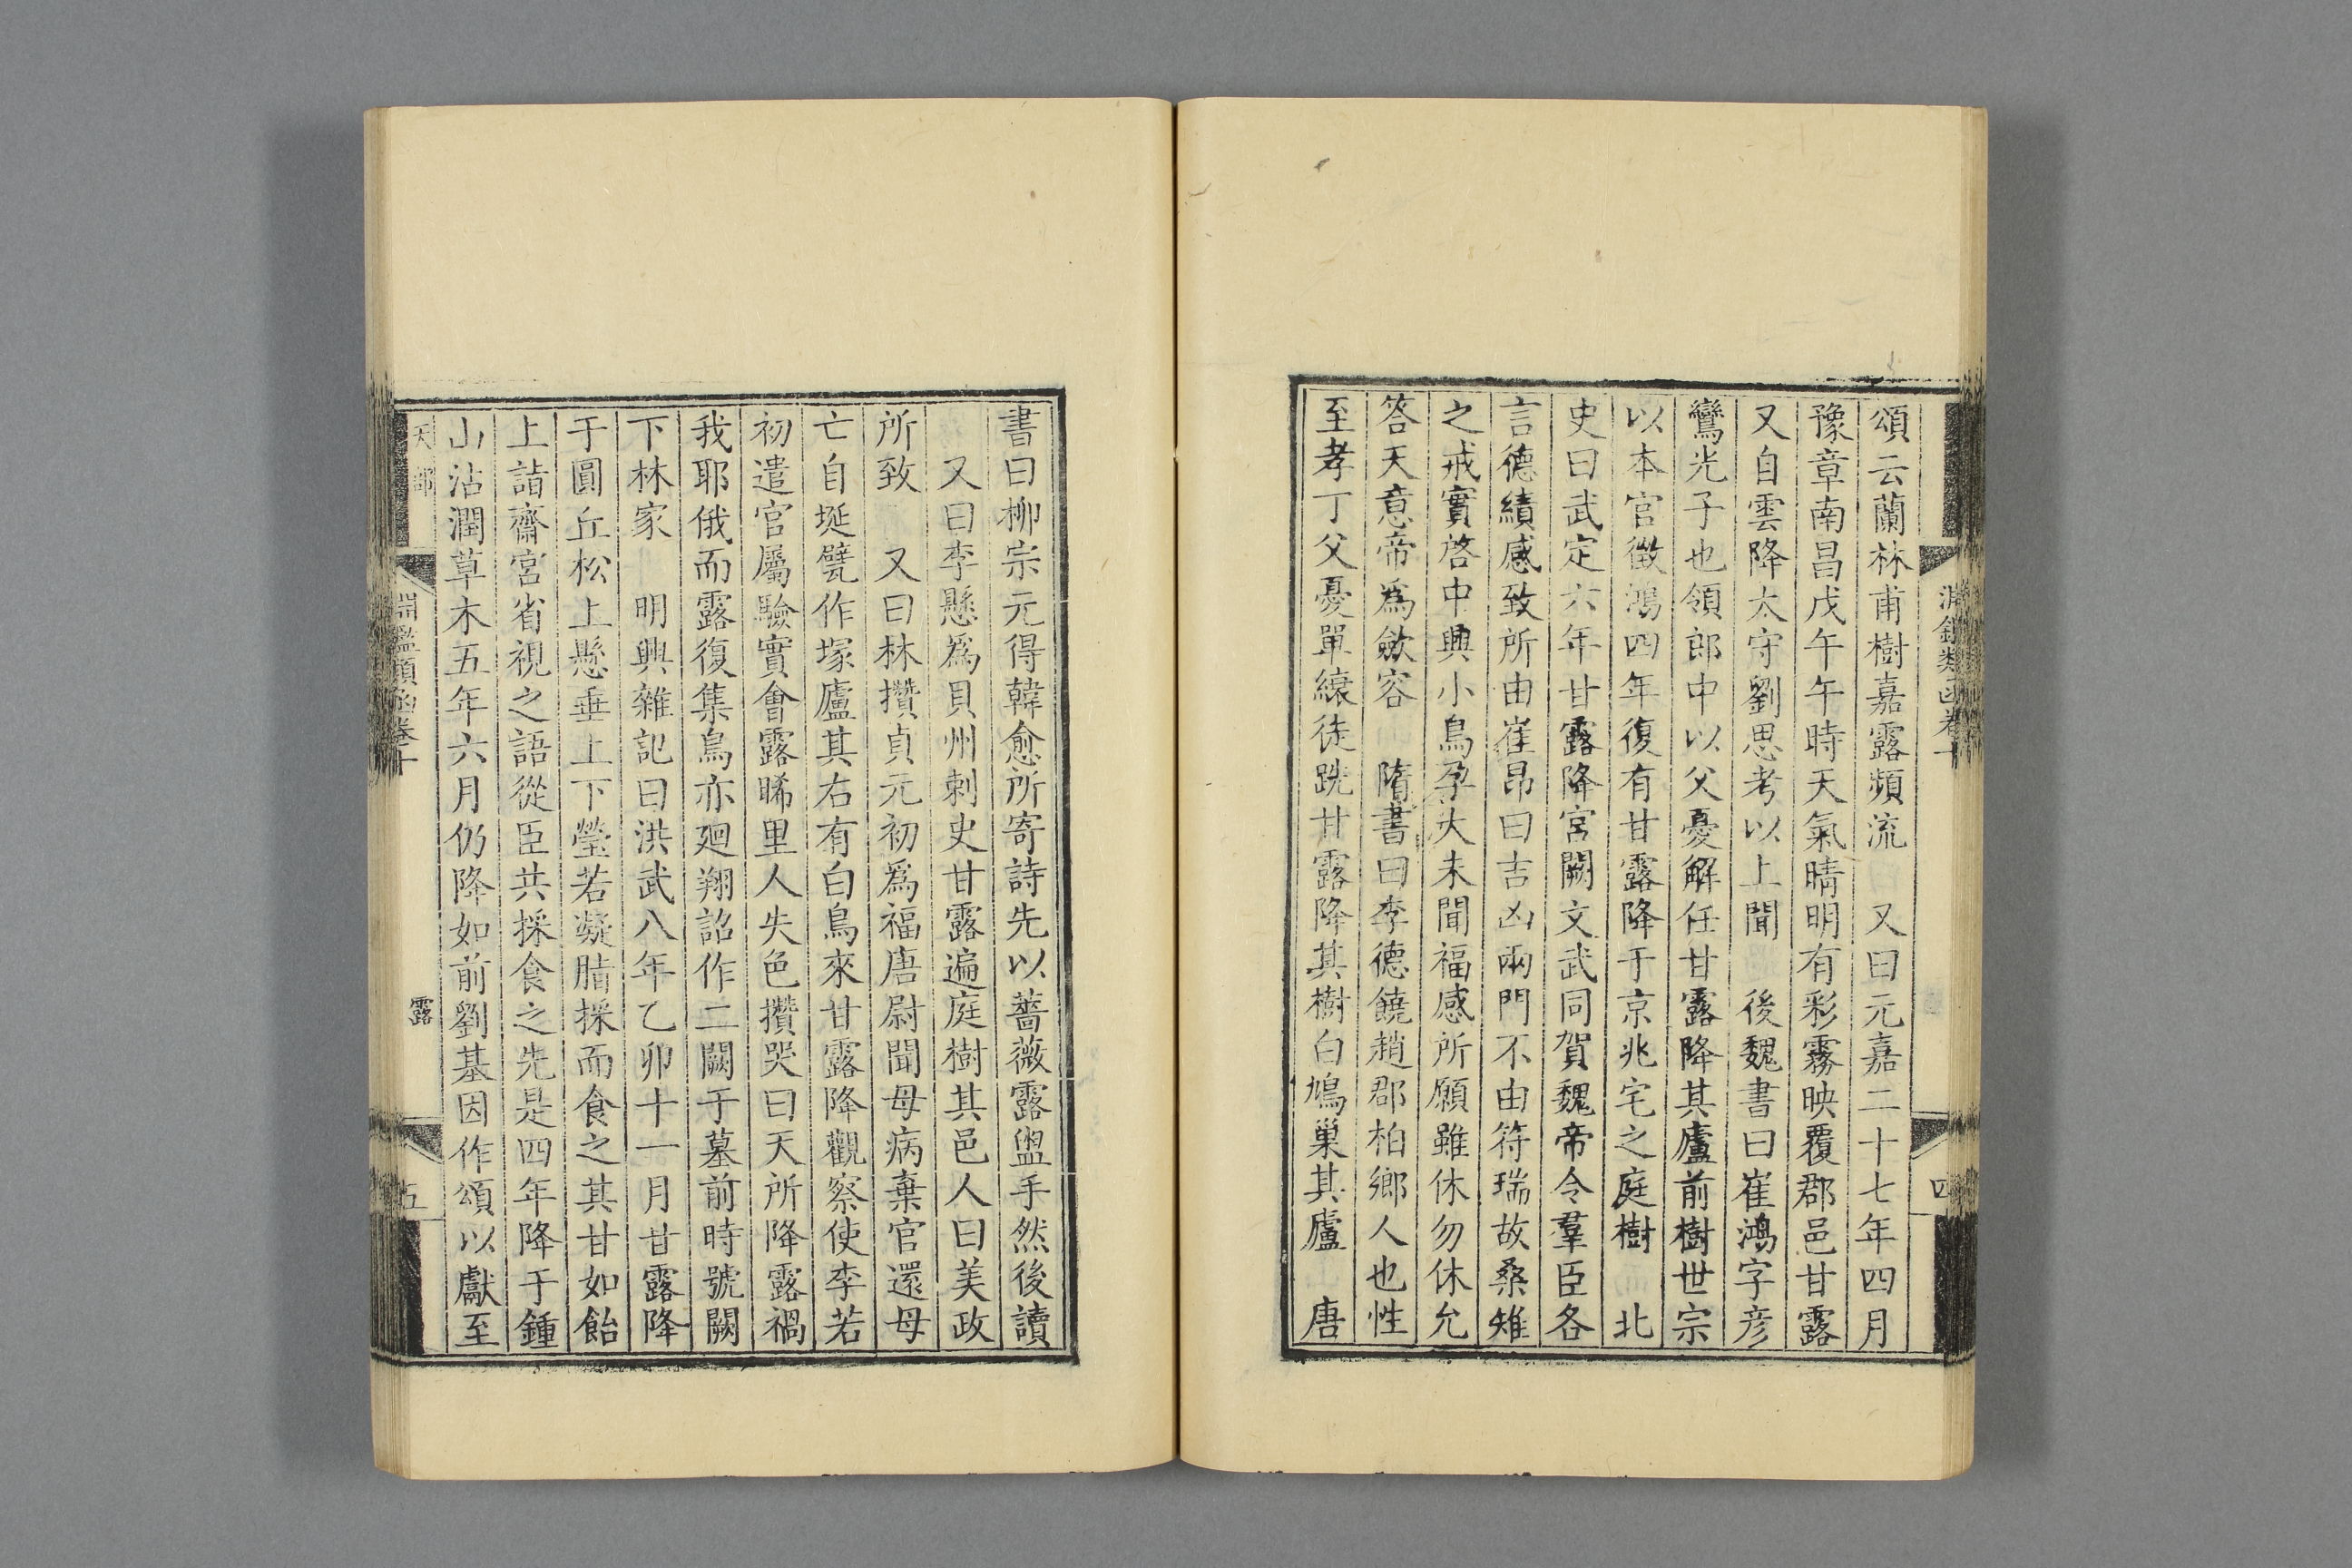 淵鑑類函卷十
四
頌云蘭林甫樹嘉露頻流　又曰元嘉二十七年四月
豫章南昌戊午午時天氣晴明有彩霧映覆郡邑甘露
又自雲降太守劉思考以上聞　後魏書曰崔鴻字彥
鸞光子也領郎中以父憂解任甘露降其廬前樹世宗
以本官徵鴻四年復有甘露降于京兆宅之庭樹　北
史曰武定六年甘露降宮闕文武同賀魏帝令羣臣各
言德績感致所由崔昂曰吉凶兩門不由符瑞故桑雉
之戒實啓中興小鳥孕大未聞福感所願雖休勿休允
答天意帝爲斂容　隋書曰李德饒趙郡柏鄉人也性
至孝丁父憂單縗徒跣甘露降其樹白鳩巢其廬　唐
書曰柳宗元得韓愈所寄詩先以薔薇露盥手然後讀
又曰李懸爲貝州刺史甘露遍庭樹其邑人曰美政
所致　又曰林攢貞元初爲福唐尉聞母病棄官還母
亡自埏甓作塚廬其右有白鳥來甘露降觀察使李若
初遣官屬驗實會露晞里人失色攢哭曰天所降露禍
我耶俄而露復集鳥亦廻翔詔作二闕于墓前時號闕
下林家　明興雜記曰洪武八年乙卯十一月甘露降
于圓丘松上懸垂上下瑩若凝脂採而食之其甘如飴
上詣齋宮省視之語從臣共採食之先是四年降于鍾
山沾潤草木五年六月仍降如前劉基因作頌以獻至
天部
淵鑑類函卷十
露
五